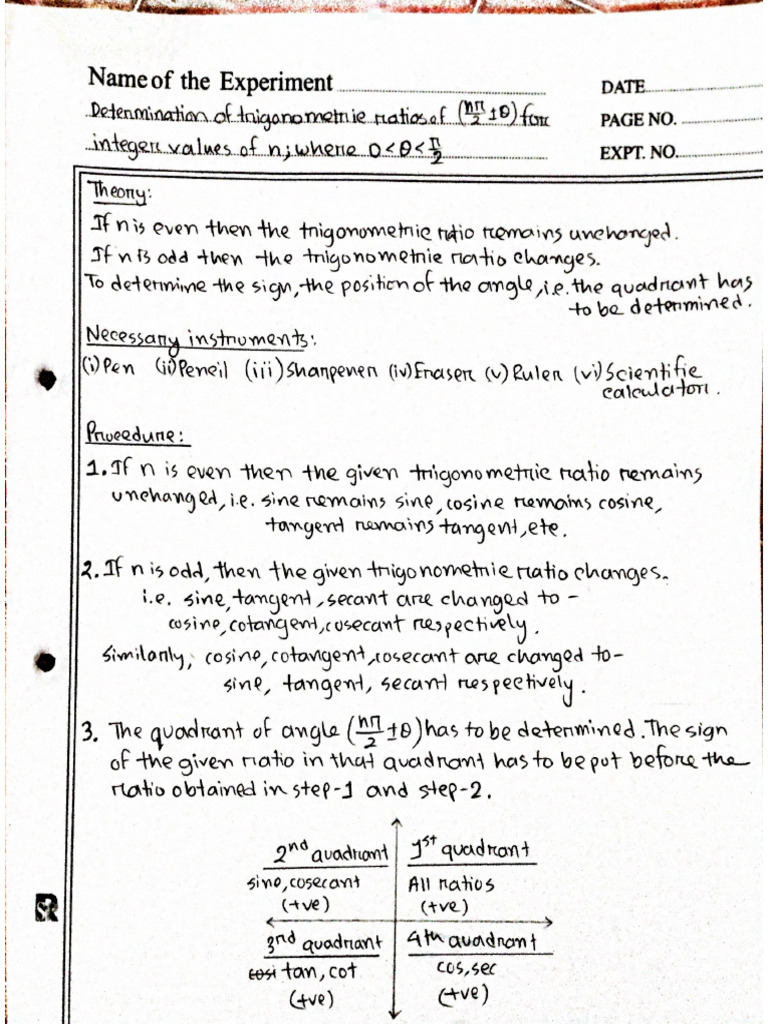 Name of the Experiment
DATE
Determination of trigonometric ratios of (nπ/2 ± θ) for
PAGE NO.
integer values of n; where 0 < θ < π/2
EXPT. NO.
Theory:
If n is even then the trigonometric ratio remains unchanged.
If n is odd then the trigonometric ratio changes.
To determine the sign, the position of the angle, i.e. the quadrant has
to be determined.
Necessary instruments:
(i) Pen (ii) Pencil (iii) Sharpener (iv) Eraser (v) Ruler (vi) Scientific
calculator.
Procedure:
1. If n is even then the given trigonometric ratio remains
unchanged, i.e. sine remains sine, cosine remains cosine,
tangent remains tangent, etc.
2. If n is odd, then the given trigonometric ratio changes.
i.e. sine, tangent, secant are changed to -
cosine, cotangent, cosecant respectively.
Similarly, cosine, cotangent, cosecant are changed to -
sine, tangent, secant respectively.
3. The quadrant of angle (nπ/2 ± θ) has to be determined. The sign
of the given ratio in that quadrant has to be put before the
ratio obtained in step-1 and step-2.
2nd quadrant
sine, cosecant
(+ve)
1st quadrant
All ratios
(+ve)
3rd quadrant
cosi tan, cot
(+ve)
4th quadrant
cos, sec
(+ve)